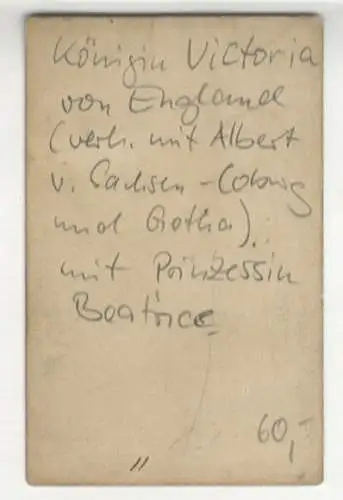 Königin Victoria
von England
(verh. mit Albert
v. Sachsen-Coburg
und Gotha).
mit Prinzessin
Beatrice
60,-
"